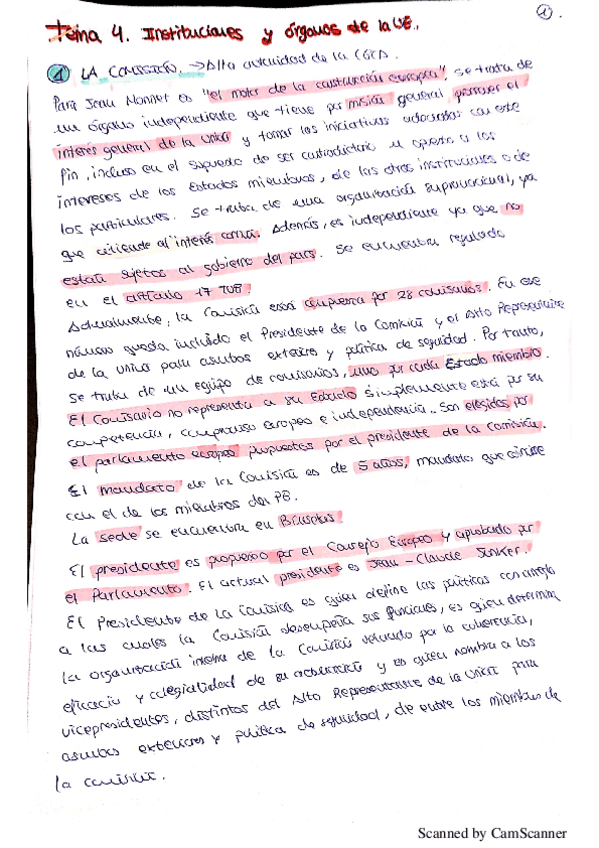 ①.
Tema 4. Instituciones y órganos de la UE.
① LA COMISIÓN. → Alta autoridad de la CECA.
Para Jean Monnet es "el motor de la construcción europea", se trata de
un órgano independiente que tiene por misión general promover el
interés general de la Unión y tomar las iniciativas adecuadas con este
fin, incluso en el supuesto de ser contradictorio u opuesto a los
intereses de los Estados miembros, de las otras instituciones o de
los particulares. Se trata de una organización supranacional, ya
que atiende al interés común. Además, es independiente ya que no
están sujetos al gobierno del país. Se encuentra regulado
en el artículo 17 TUE.
Actualmente, la Comisión está compuesta por 28 comisarios. En ese
número queda incluido el Presidente de la Comisión y el Alto Representante
de la Unión para asuntos exteriores y política de seguridad. Por tanto,
se trata de un equipo de comisarios, uno por cada Estado miembro.
El Comisario no representa a su Estado simplemente está por su
competencia, compromiso europeo e independencia. Son elegidos por
el parlamento europeo propuestos por el presidente de la comisión.
El mandato de la Comisión es de 5 años, mandato que coincide
con el de los miembros del PE.
La sede se encuentra en Bruselas.
El presidente es propuesto por el Consejo Europeo y aprobado por
el Parlamento. El actual presidente es Jean-Claude Junker.
El Presidente de la Comisión es quien define las políticas con arreglo
a las cuales la Comisión desempeña sus funciones, es quien determina
la organización interna de la Comisión velando por la coherencia,
eficacia y colegialidad de su actuación y es quien nombra a los
vicepresidentes, distintos del Alto Representante de la Unión para
asuntos exteriores y política de seguridad, de entre los miembros de
la comisión.
Scanned by CamScanner